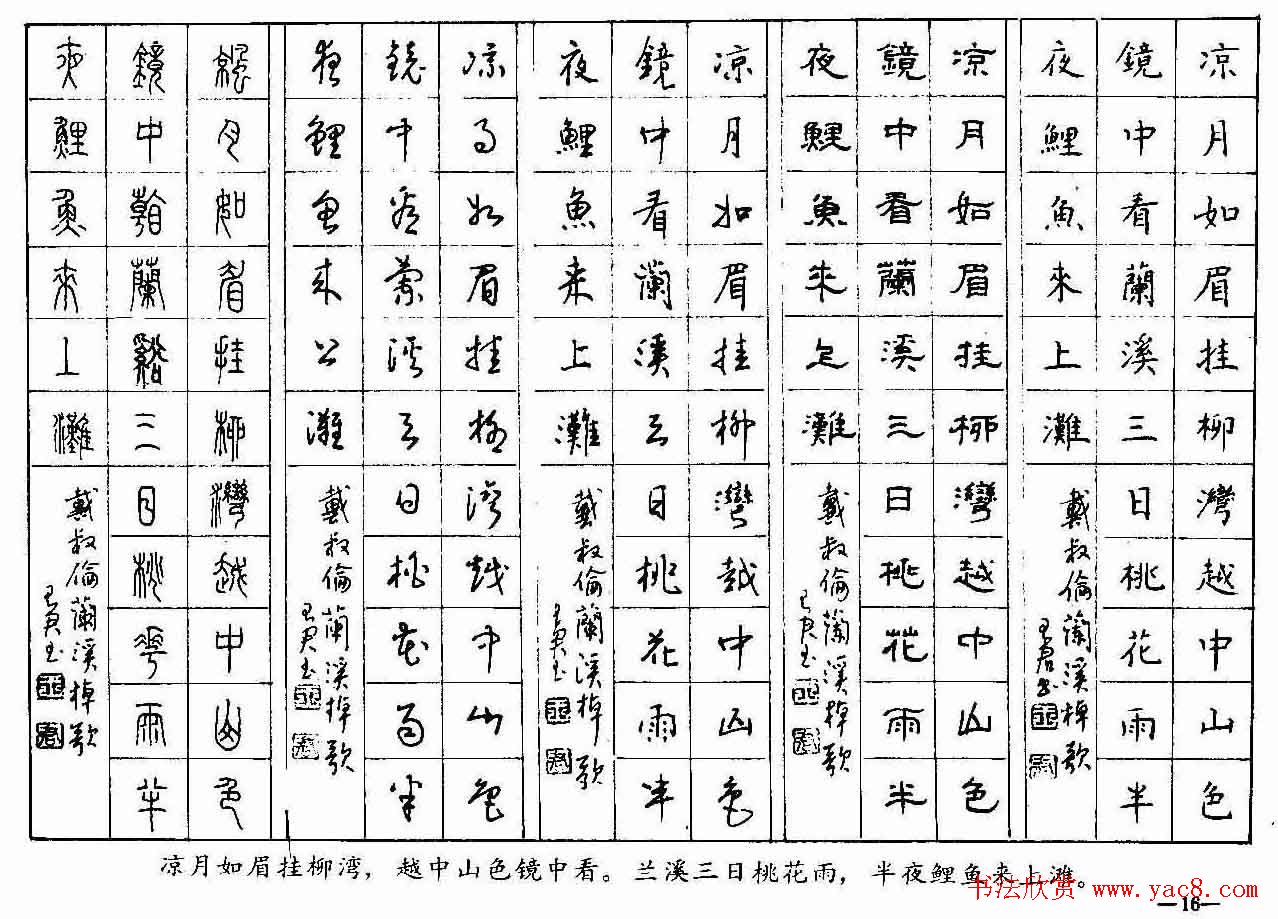 凉月如眉挂柳灣越中山色
鏡中看蘭溪三日桃花雨半
夜鯉魚來上灘
戴叔倫蘭溪棹歌
凉月如眉挂柳灣越中山色
鏡中看蘭溪三日桃花雨半
夜鯉魚來上灘
戴叔倫蘭溪棹歌
凉月如眉挂柳灣越中山色
鏡中看蘭溪三日桃花雨半
夜鯉魚来上灘
戴叔倫蘭溪棹歌
凉月如眉挂柳灣越中山色
鏡中看蘭溪三日桃花雨半
夜鯉魚来上灘
戴叔倫蘭溪棹歌
凉月如眉挂柳灣越中山色
鏡中看蘭谿三日桃花雨半
夜鯉魚來上灘
戴叔倫蘭溪棹歌
凉月如眉挂柳湾，越中山色镜中看。兰溪三日桃花雨，半夜鲤鱼来上滩。
书法欣赏 www.yac8.com
—16—